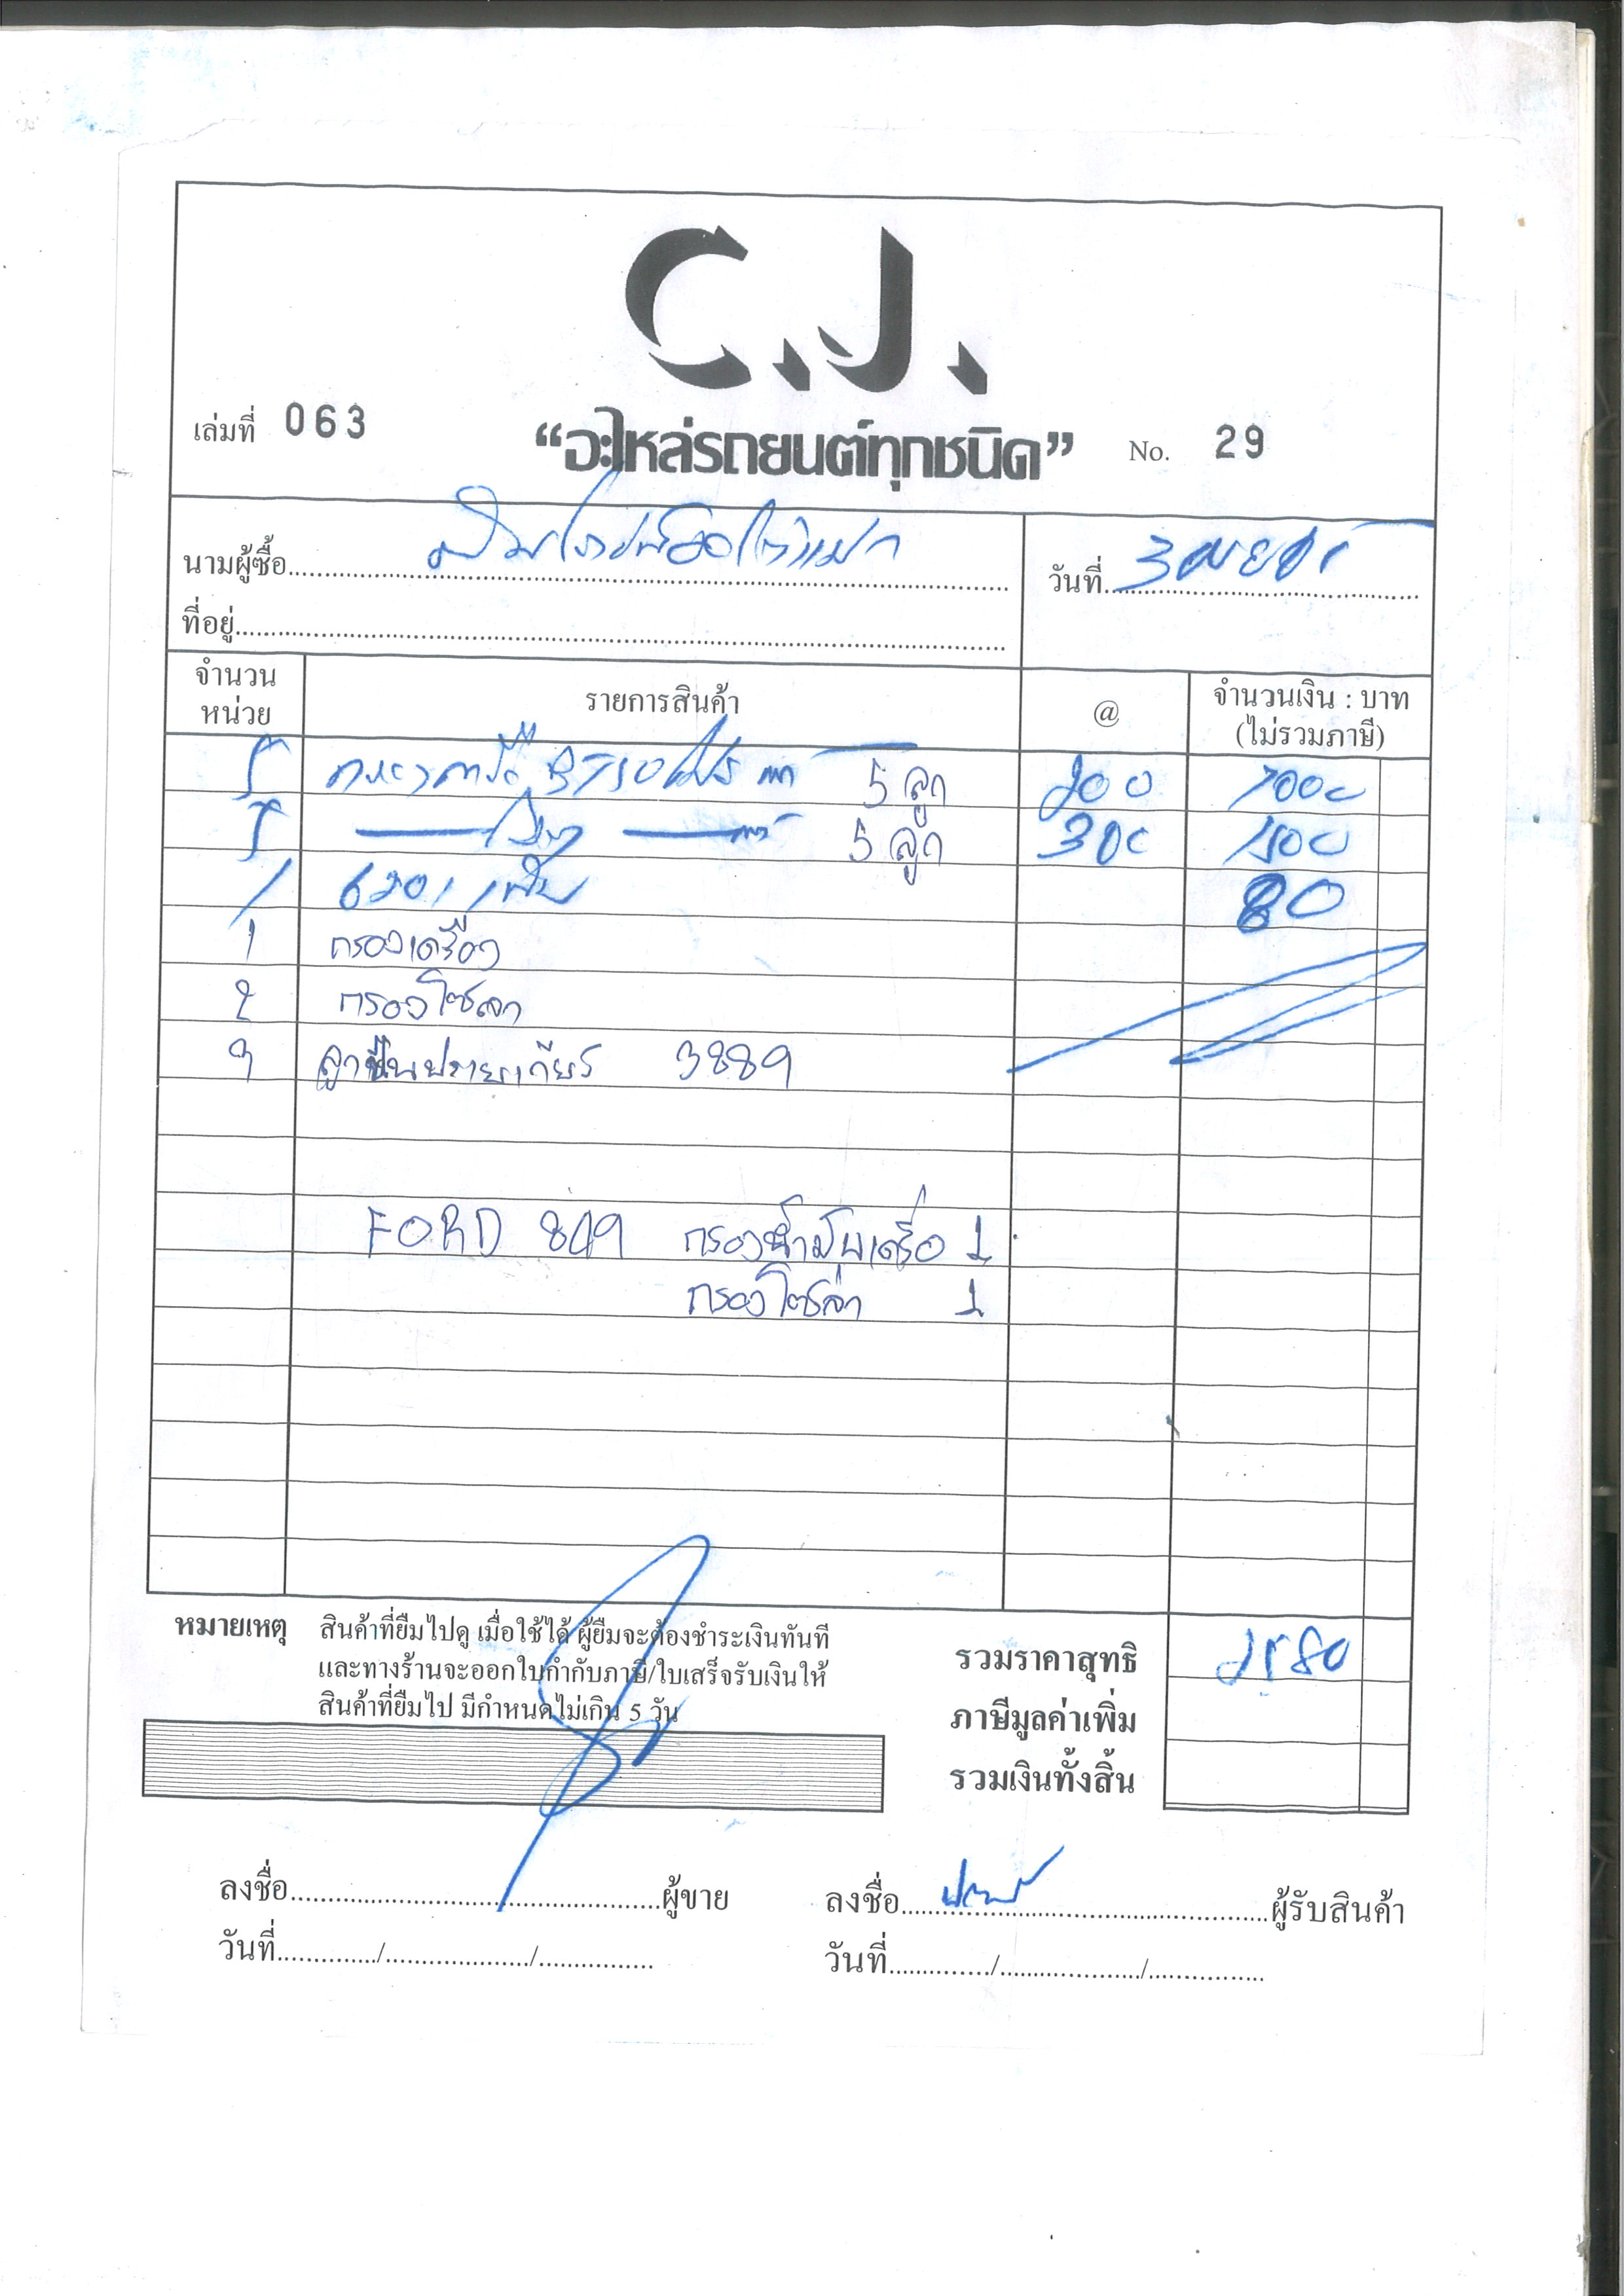 C.J.
เล่มที่ 063 “อะไหล่รถยนต์ทุกชนิด” No. 29
นามผู้ซื้อ
วันที่ 3
ที่อยู่
จำนวนหน่วย รายการสินค้า @ จำนวนเงิน : บาท (ไม่รวมภาษี)
5 BT50 5 ลูก 200 1000
5 5 ลูก 300 1500
1 6201 80
1 กรองเครื่อง
2 กรองโซล่า
3889
FORD กรองน้ำมันเครื่อ 1
กรองโซล่า 1
หมายเหตุ สินค้าที่ยืมไปดู เมื่อใช้ได้ ผู้ยืมจะต้องชำระเงินทันที
และทางร้านจะออกใบกำกับภาษี/ใบเสร็จรับเงินให้
สินค้าที่ยืมไป มีกำหนดไม่เกิน 5 วัน
รวมราคาสุทธิ 2580
ภาษีมูลค่าเพิ่ม
รวมเงินทั้งสิ้น
ลงชื่อ ผู้ขาย ลงชื่อ ผู้รับสินค้า
วันที่ / / วันที่ / /